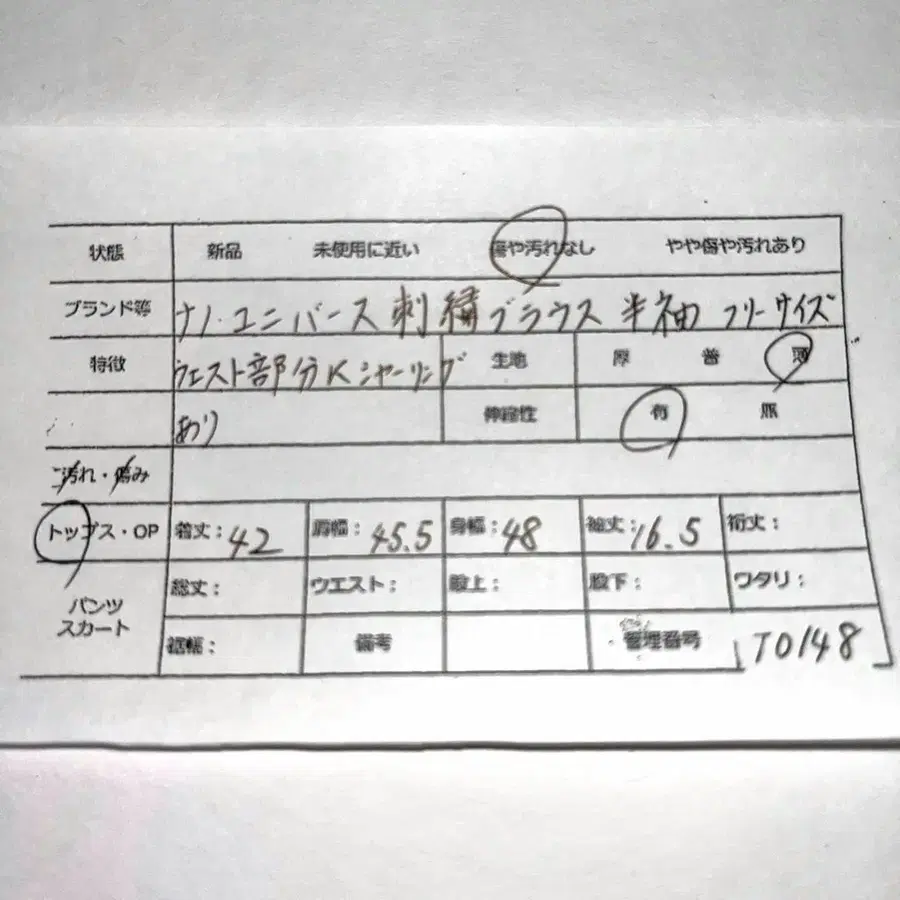 状態 新品 未使用に近い 傷や汚れなし やや傷や汚れあり
ブランド等 ナノ・ユニバース 刺繍ブラウス 半袖 フリーサイズ
特徴 ウエスト部分にシャーリング 生地 厚 普 薄
あり 伸縮性 有 無
汚れ・傷み
トップス・OP 着丈:42 肩幅:45.5 身幅:48 袖丈:16.5 裄丈:
パンツ スカート
総丈: ウエスト: 股上: 股下: ワタリ:
裾幅: 備考 管理番号 T0148